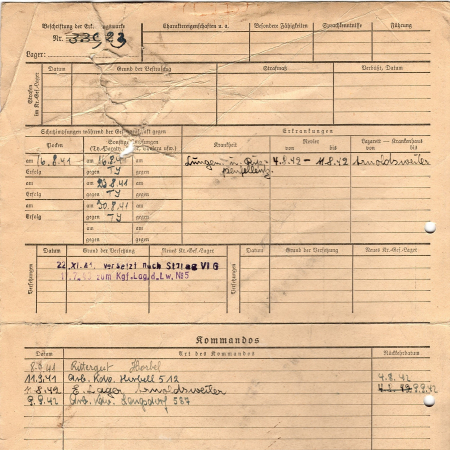 Beschriftung der Erkennungsmarke
Nr.
Lager:
Charaktereigenschaften u. a.
Besondere Fähigkeiten
Sprachkenntnisse
Führung
Strafen im Kr.-Gef.-Lager
Datum
Grund der Bestrafung
Strafmaß
Verbüßt, Datum
Schutzimpfungen während der Gef. gegen
Erkrankungen
Pocken
Sonstige
Krankheit
Revier
von bis
Lazarett — Krankenhaus
von bis
am 16.8.41 am 16.8.41 am
Erfolg gegen TY gegen
am am 23.8.41 am
Erfolg gegen TY gegen
am am 30.8.41 am
Erfolg gegen TY gegen
am am
gegen gegen
Lungen- u. 4.8.42 — 11.8.42 Arnoldsweiler
Versetzungen
Datum
Grund der Versetzung
Neues Kr.-Gef.-Lager
Versetzungen
Datum
Grund der Versetzung
Neues Kr.-Gef.-Lager
22. XI. 41. versetzt nach Stalag VI G
zum Kgf.Lag.d.Lw. Nr5
Kommandos
Datum
Art des Kommandos
Rückkehrdatum
8.8.41 Rittergut Horbel
11.9.41 Arb. Kdo. Hürbell 512 4.8.42
8.42 E. Lager Arnoldsweiler 9.9.42
9.9.42 Arb. Kdo. Langsdorf 587